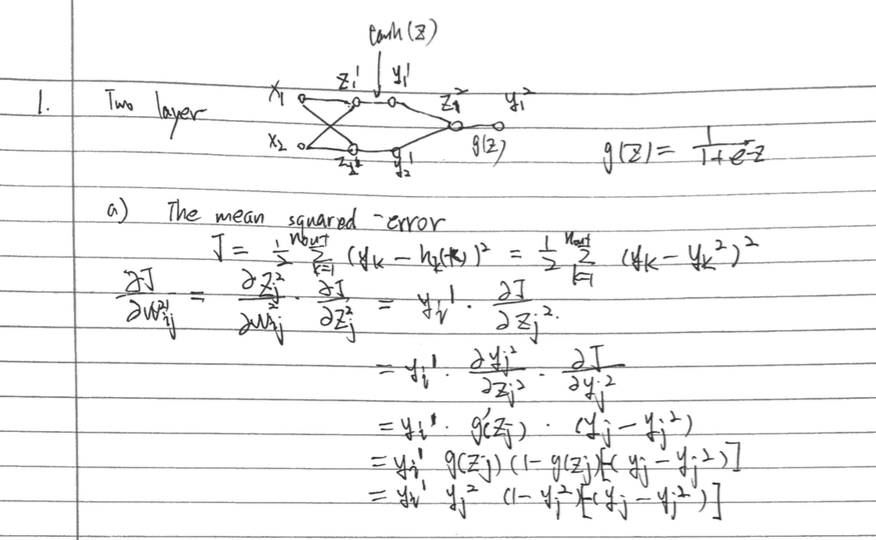 tanh(z)
1. Two layer x₁ x₂ z₁¹ y₁¹ y₂¹ z₁² y₁² g(z) g(z) = 1/(1+e^-z)
a) The mean squared-error
J = 1/2 Σ_{k=1}^{nout} (y_k - h_k(x))² = 1/2 Σ_{k=1}^{nout} (y_k - y_k²)²
∂J/∂w_ij² = ∂z_j²/∂w_ij² · ∂J/∂z_j² = y_i¹ · ∂J/∂z_j².
= y_i¹ · ∂y_j²/∂z_j² · ∂J/∂y_j²
= y_i¹ · g'(z_j) · (y_j - y_j²)
= y_i¹ g(z_j) (1 - g(z_j)) [-(y_j - y_j²)]
= y_i¹ y_j² (1 - y_j²) [-(y_j - y_j²)]